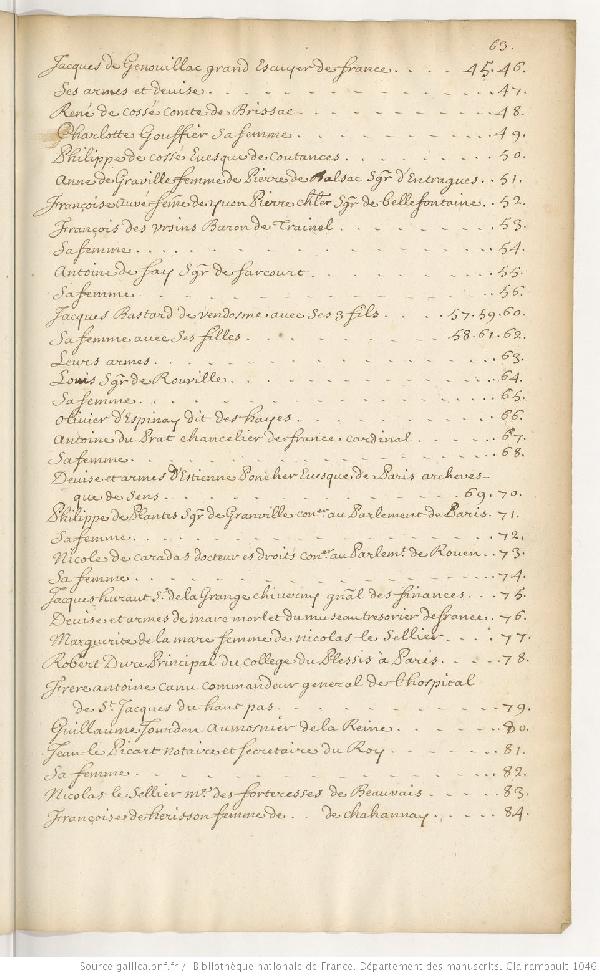 63.
Jacques de Genouillac grand Escuyer de france . . . . 45. 46.
Ses armes et devise . . . . 47.
René de cossé comte de Brissac . . . . 48.
Charlotte Gouffier sa femme . . . . 49.
Philippe de cossé Evesque de coutances . . . . 50.
Anne de Graville femme de Pierre de Balsac Sgr d'Entragues . . 51.
Françoise femme de Pierre chlr Sgr de bellefontaine . . 52.
François des vrsins Baron de Trainel . . . . 53.
Sa femme . . . . 54.
Antoine de fay Sgr de farcourt . . . . 55.
Sa femme . . . . 56.
Jacques Bastard de vendosme avec Ses 3 fils . . . . 57. 59. 60.
Sa femme avec Ses filles . . . . 58. 61. 62.
Leurs armes . . . . 63.
Louis Sgr de Rouville . . . . 64.
Sa femme . . . . 65.
Olivier d'Espinay dit des hayes . . . . 66.
Antoine du Prat chancelier de france cardinal . . . . 67.
Sa femme . . . . 68.
Devise et armes d'Estienne Poncher Evesque de Paris archeves-
que de Sens . . . . 69. 70.
Philippe de Plantes Sgr de Granville coner au Parlement de Paris . 71.
Sa femme . . . . 72.
Nicole de caradas docteur es droits coner au Parlemt de Rouen . . 73.
Sa femme . . . . 74.
Jacques huraut Sr de la Grange chiverny gnal des finances . . . 75.
Devise et armes de marc morlet du museau tresorier de france . 76.
Marguerite de la mare femme de nicolas le Sellier . . . . 77.
Robert Dure Principal du college du Plessis à Paris . . . . 78.
Frere antoine canu commandeur general de l'hospital
de St Jacques du haut pas . . . . 79.
Guillaume Jourden aumosnier de la Reine . . . . 80.
Jean le Picart notaire et secretaire du Roy . . . . 81.
Sa femme . . . . 82.
Nicolas le Sellier mre des forteresses de Beauvais . . . . 83.
Françoise de herisson femme de . . . de chahannay . . . . 84.
Source gallica.bnf.fr / Bibliothèque nationale de France. Département des manuscrits. Clairambault 1046